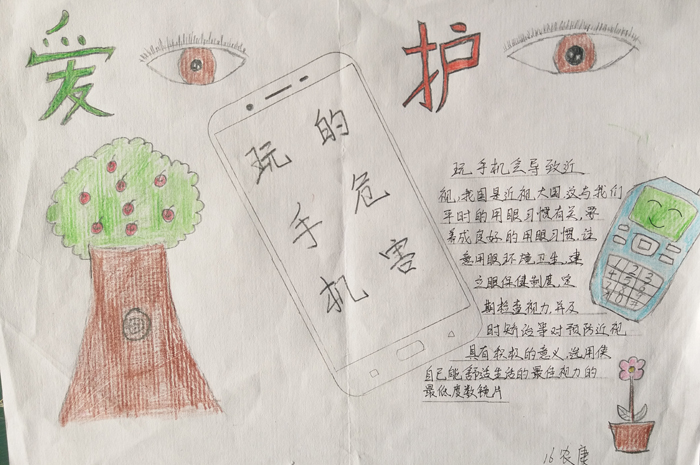 爱护
玩手机
的危害
玩手机会导致近
视,我国是近视大国,这与我们
平时的用眼习惯有关,要
养成良好的用眼习惯,注
意用眼环境卫生,建
立眼保健制度,定
期检查视力,并及
时矫治等对预防近视
具有积极的意义,选用使
自己能舒适生活的最佳视力的
最低度数镜片
16农